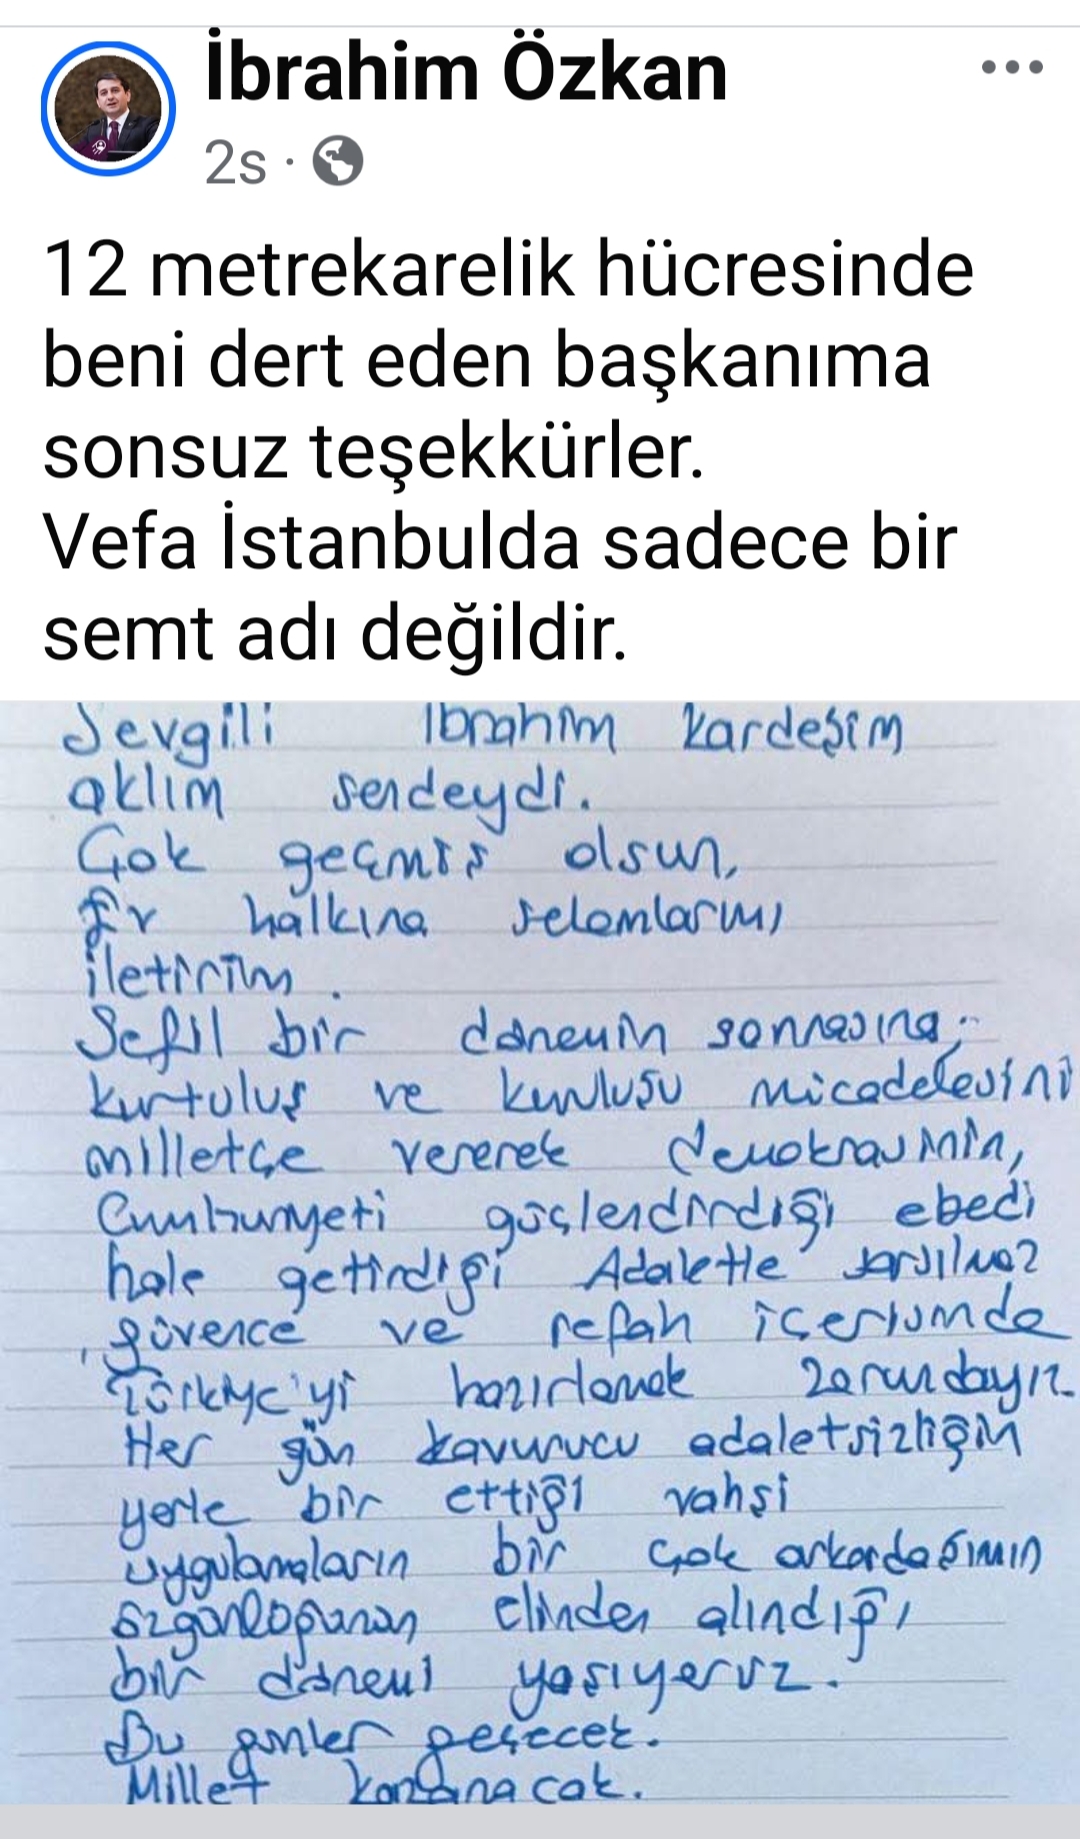 İbrahim Özkan
2s ·
12 metrekarelik hücresinde
beni dert eden başkanıma
sonsuz teşekkürler.
Vefa İstanbulda sadece bir
semt adı değildir.
Sevgili İbrahim kardeşim
aklım sendeydi.
Çok geçmiş olsun,
halkına selamlarımı
iletirim.
Sefil bir dönemin sonrasına
kurtuluş ve kuruluşu mücadelesini
milletçe vererek demokrasinin,
Cumhuriyeti güçlendirdiği ebedi
hale getirdiği Adaletle sarsılmaz
güvence ve refah içerisinde
Türkiye'yi hazırlamak zorundayız.
Her gün kavurucu adaletsizliğin
yerle bir ettiği vahşi
uygulamaların bir çok arkadaşımın
özgürlüğünün elinden alındığı
bir dönemi yaşıyoruz.
Bu günler geçecek.
Millet kazanacak.